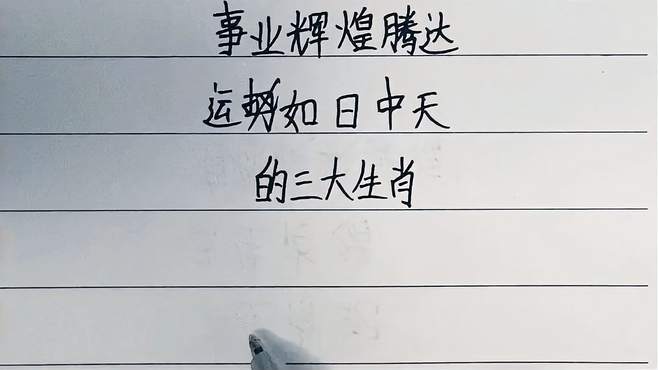 事业辉煌腾达
运势如日中天
的三大生肖